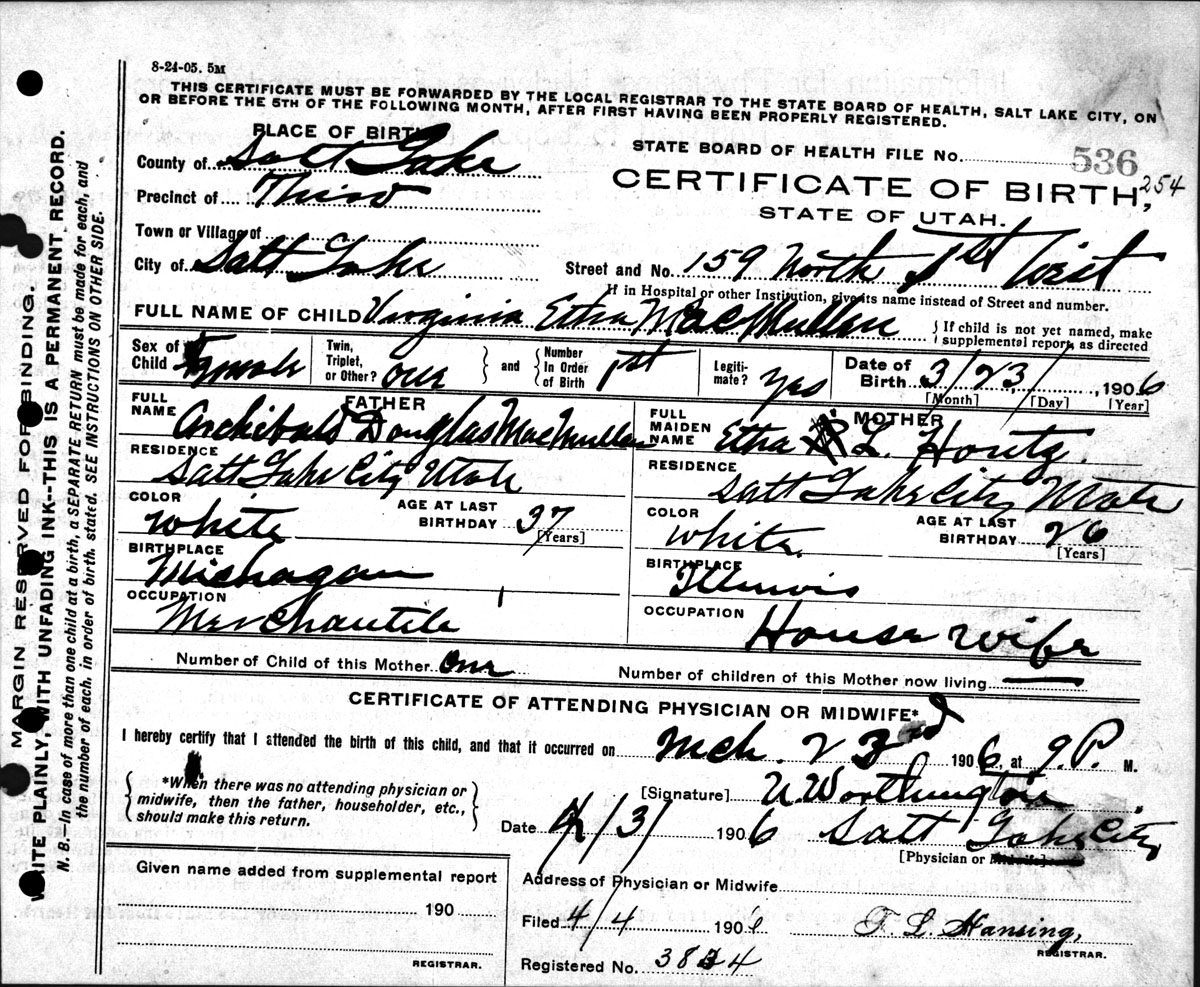 8-24-05. 5M
THIS CERTIFICATE MUST BE FORWARDED BY THE LOCAL REGISTRAR TO THE STATE BOARD OF HEALTH, SALT LAKE CITY, ON
OR BEFORE THE 5TH OF THE FOLLOWING MONTH, AFTER FIRST HAVING BEEN PROPERLY REGISTERED.
PLACE OF BIRTH
County of Salt Lake
Precinct of Third
Town or Village of
City of Salt Lake
STATE BOARD OF HEALTH FILE No. 536
CERTIFICATE OF BIRTH, 254
STATE OF UTAH.
Street and No. 159 North 1st West
If in Hospital or other Institution, give its name instead of Street and number.
FULL NAME OF CHILD Virginia Etha MacMullen
If child is not yet named, make
supplemental report, as directed
Sex of Child Female
Twin, Triplet, or Other? one
and
Number In Order of Birth 1st
Legitimate? yes
Date of Birth 3/23/, 1906
[Month] [Day] [Year]
FATHER
FULL NAME Archibald Douglas MacMullen
RESIDENCE
Salt Lake City Utah
COLOR
white
AGE AT LAST BIRTHDAY 37
[Years]
BIRTHPLACE
Michagan
OCCUPATION
Merchantile
MOTHER
FULL MAIDEN NAME Etha L. Houtz
RESIDENCE
Salt Lake City Utah
COLOR
white.
AGE AT LAST BIRTHDAY 26
[Years]
BIRTHPLACE
Illinois
OCCUPATION
House wife
Number of Child of this Mother One
Number of children of this Mother now living
CERTIFICATE OF ATTENDING PHYSICIAN OR MIDWIFE*
I hereby certify that I attended the birth of this child, and that it occurred on Mch. 23rd 1906, at 9. P. M.
*When there was no attending physician or
midwife, then the father, householder, etc.,
should make this return.
[Signature] U. Worthington
Date 4/3/ 1906 Salt Lake City
[Physician or Midwife]
Given name added from supplemental report
190
REGISTRAR.
Address of Physician or Midwife
Filed 4/4 1906 T. L. Hansing,
REGISTRAR.
Registered No. 3834
MARGIN RESERVED FOR BINDING.
WRITE PLAINLY, WITH UNFADING INK--THIS IS A PERMANENT RECORD.
N. B.—In case of more than one child at a birth, a SEPARATE RETURN must be made for each, and
the number of each, in order of birth, stated. SEE INSTRUCTIONS ON OTHER SIDE.